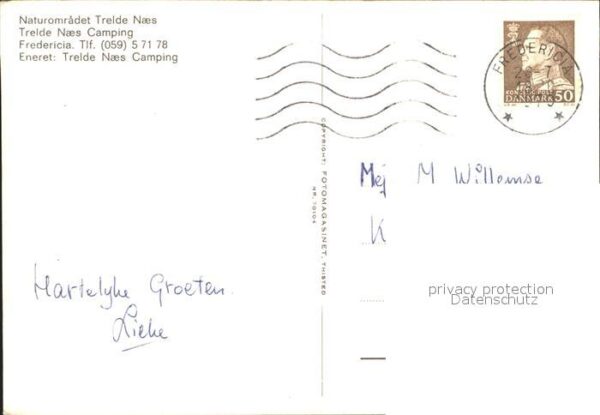 Naturområdet Trelde Næs
Trelde Næs Camping
Fredericia. Tlf. (059) 5 71 78
Eneret: Trelde Næs Camping
FREDERICIA
DANMARK 50
COPYRIGHT: FOTOMAGASINET, THISTED
NR. 10104
Mej M Willemse
K
Hartelyke Groeten.
Lieke
privacy protection
Datenschutz